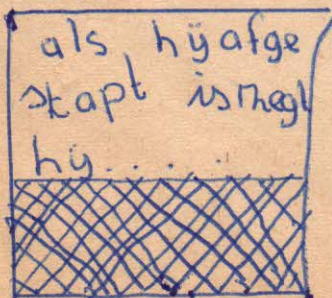 als hÿafge
stapt is megt
hÿ.....